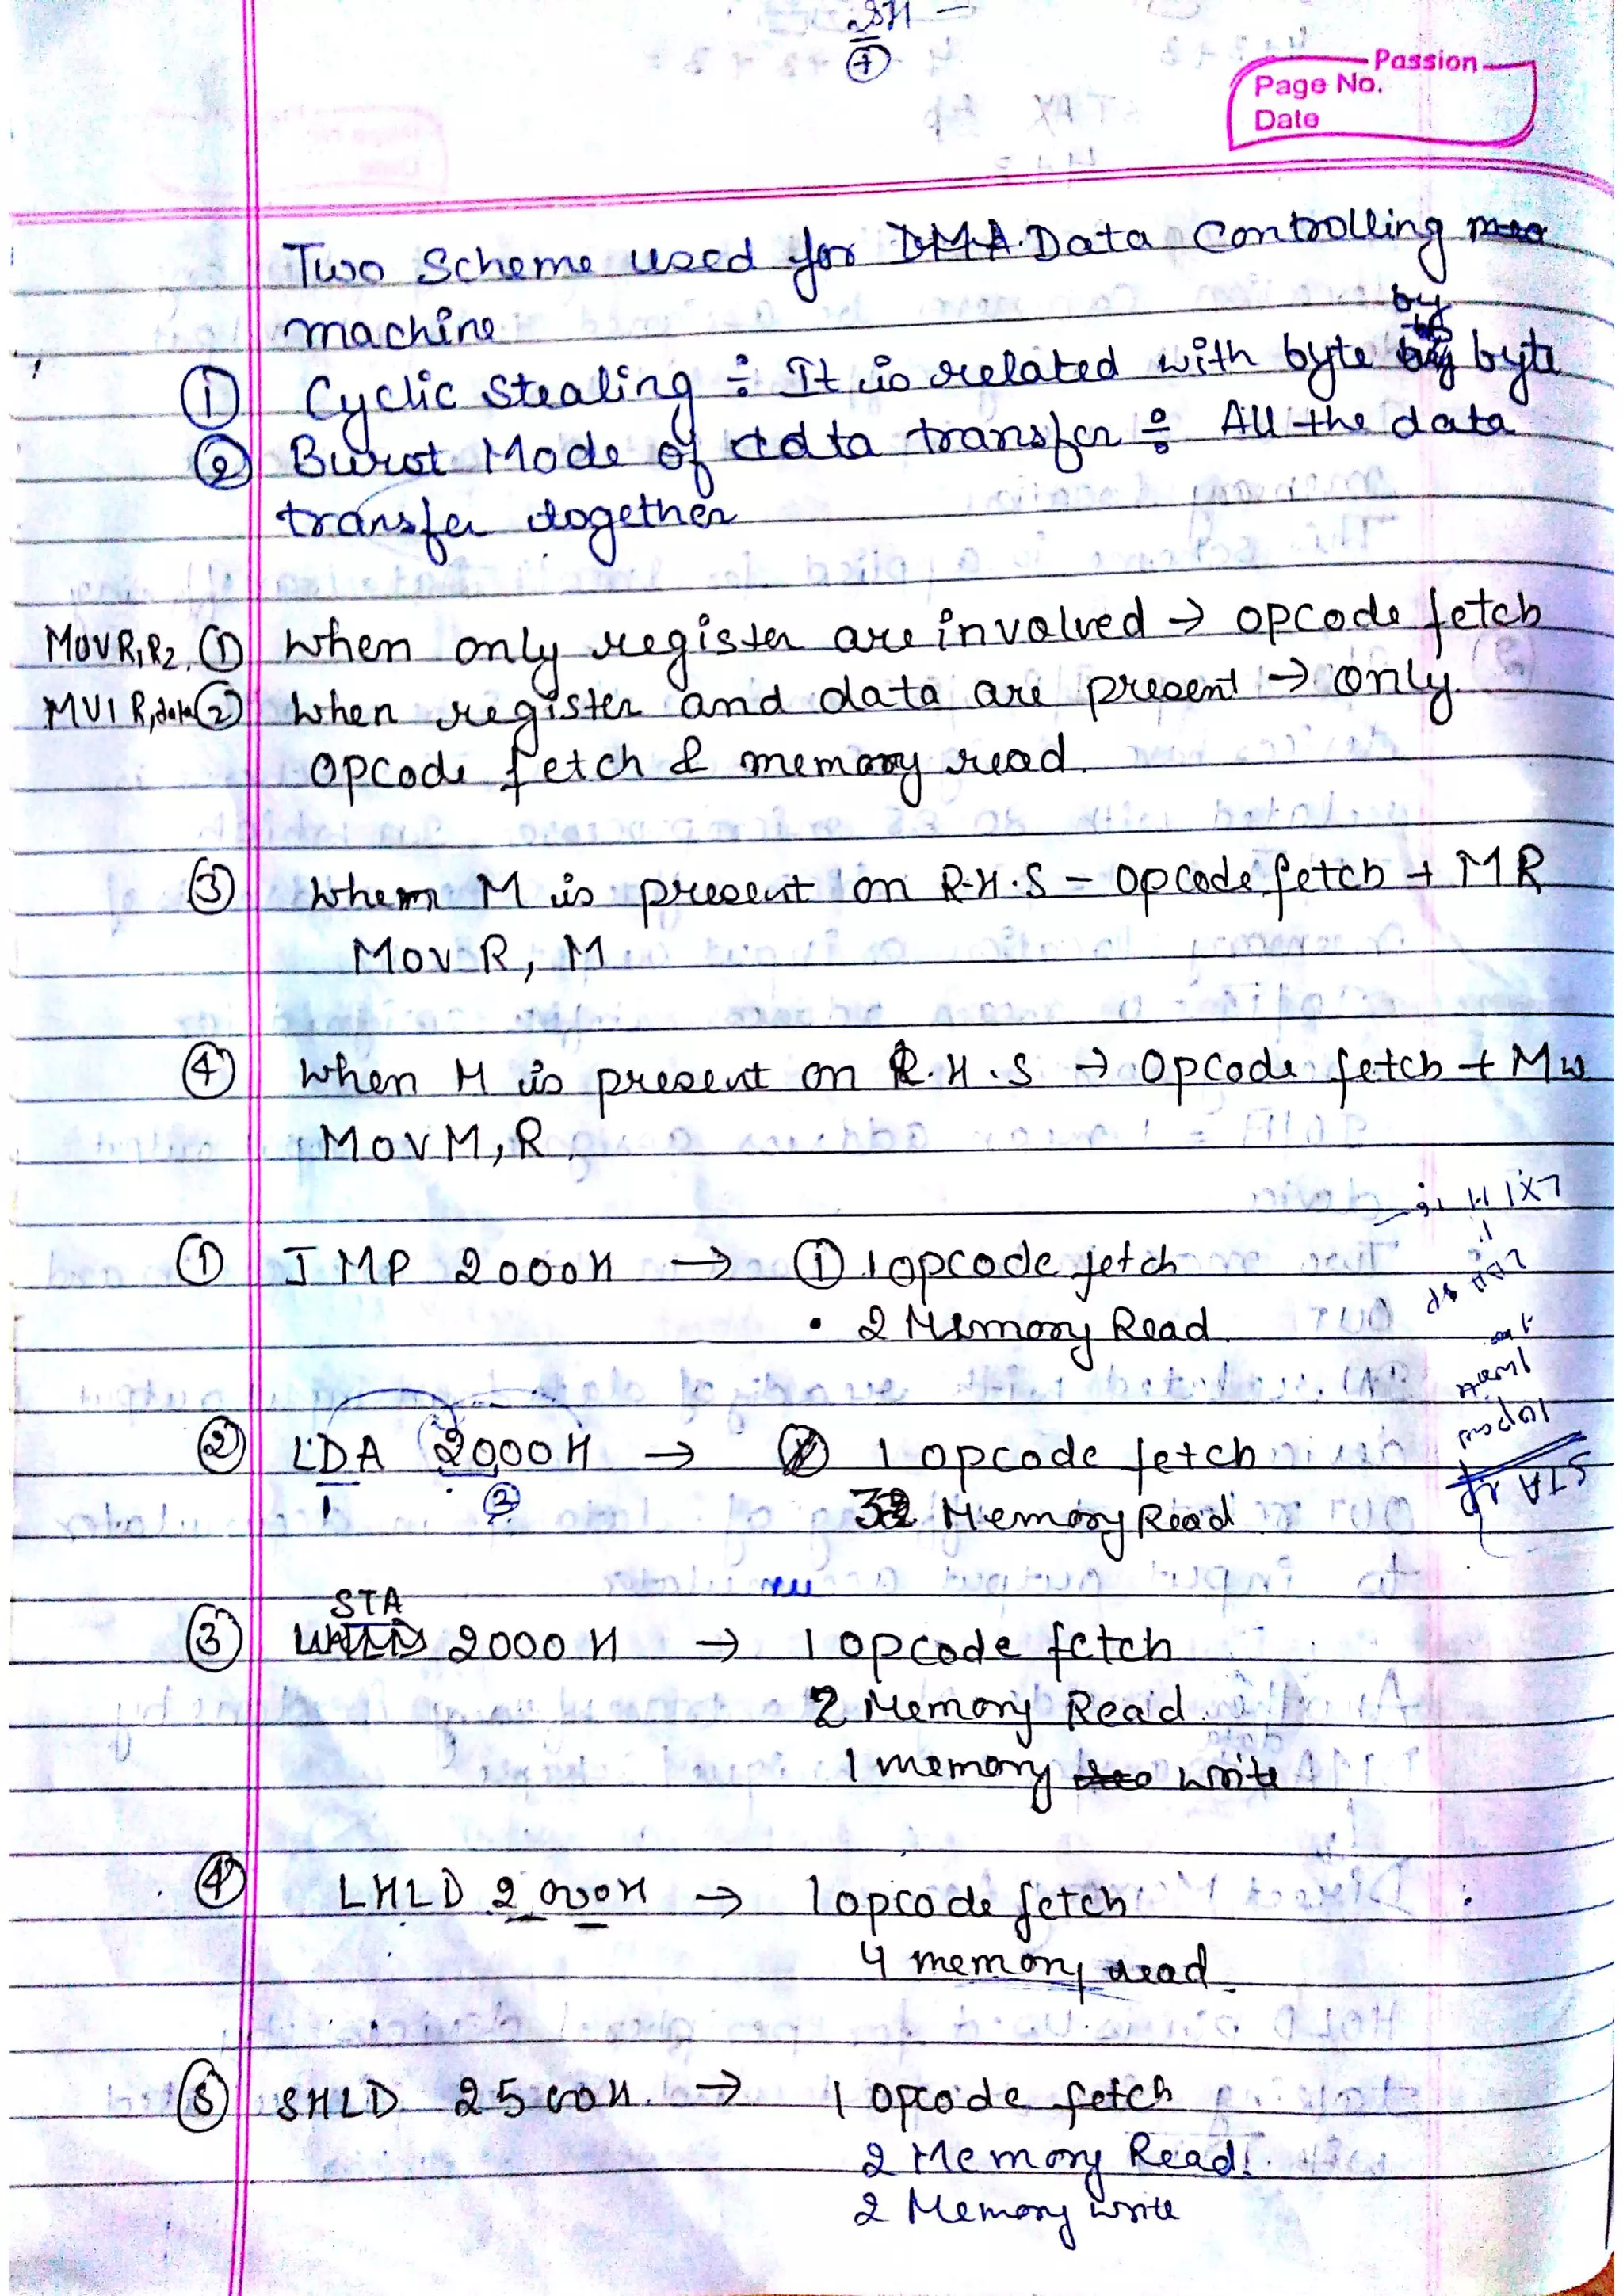 Passion
Page No.
Date
Two Scheme used for DMA Data Controlling
machine
① Cyclic Stealing ÷ It is related with byte by byte
② Burst Mode of data transfer ÷ All the data
transfer together
MOV R1R2. ① When only register are involved → opcode fetch
MVI R,data ② When register and data are present → only
opcode fetch & memory read.
③ When M is present on R.H.S – opcode fetch + MR
MOV R, M
④ When M is present on R.H.S → opcode fetch + MW
MOV M, R
① JMP 2000H → ① 1 opcode fetch
• 2 Memory Read
② LDA 2000H → 1 opcode fetch
1 ② 3 Memory Read
STA
③ 2000H → 1 opcode fetch
2 Memory Read
1 memory write
④ LHLD 2000H → 1 opcode fetch
4 memory read
⑤ SHLD 2500H. → 1 opcode fetch
2 Memory Read
2 Memory write